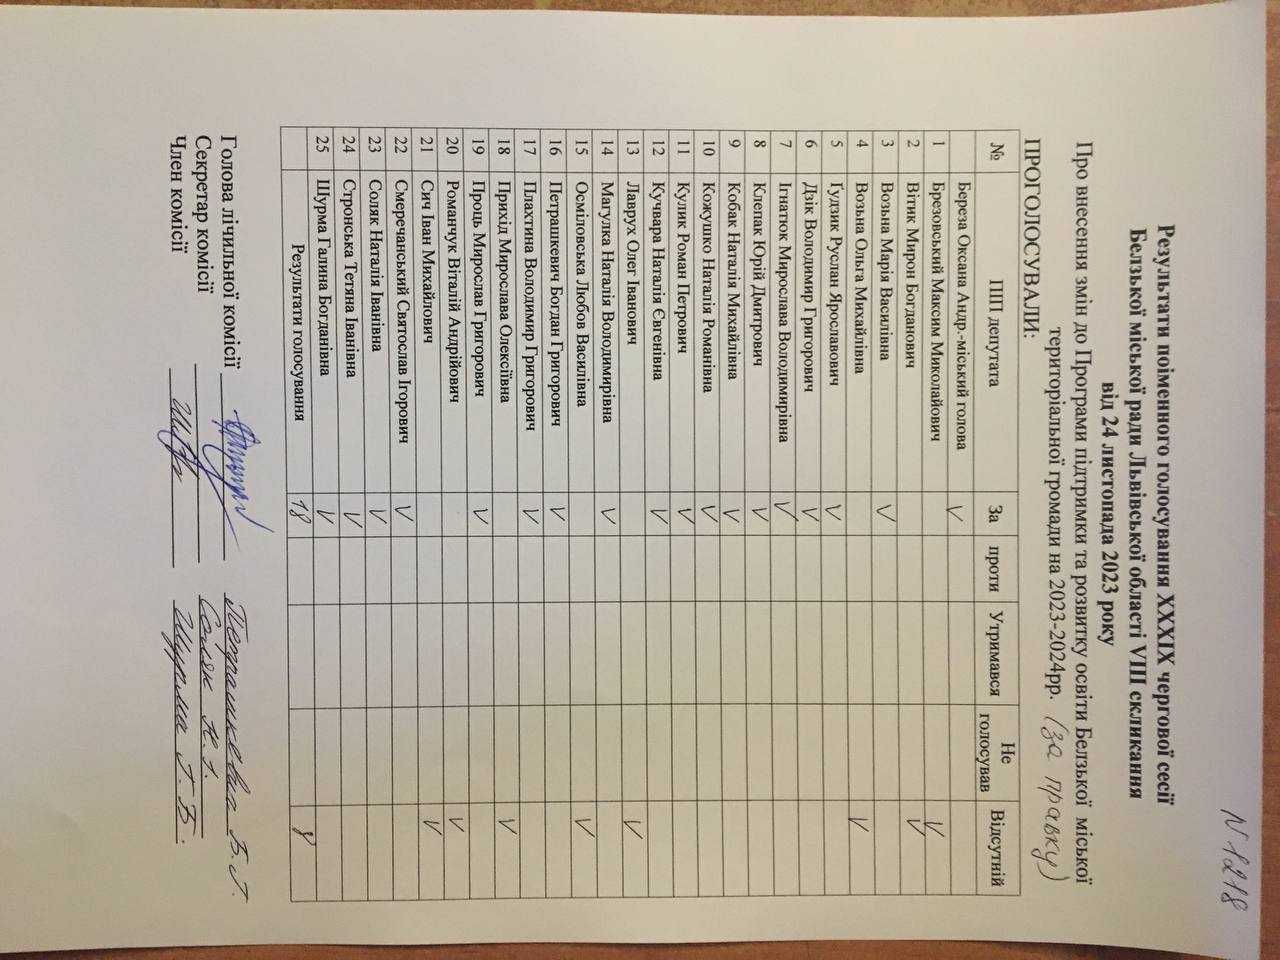 N 1218
Результати поіменного голосування XXXIX чергової сесії
Белзької міської ради Львівської області VIII скликання
від 24 листопада 2023 року
Про внесення змін до Програми підтримки та розвитку освіти Белзької міської
територіальної громади на 2023-2024рр. (за правку)
ПРОГОЛОСУВАЛИ:
№ ПІП депутата За проти Утримався Не голосував Відсутній
Береза Оксана Андр.-міський голова V
1 Брезовський Максим Миколайович V
2 Вітик Мирон Богданович V
3 Возьна Марія Василівна V
4 Возьна Ольга Михайлівна V
5 Ґудзик Руслан Ярославович V
6 Дзік Володимир Григорович V
7 Ігнатюк Мирослава Володимирівна V
8 Клепак Юрій Дмитрович V
9 Кобак Наталія Михайлівна V
10 Кожушко Наталія Романівна V
11 Кулик Роман Петрович V
12 Кучвара Наталія Євгенівна V
13 Лаврух Олег Іванович V
14 Магулка Наталія Володимирівна V
15 Осміловська Любов Василівна V
16 Петрашкевич Богдан Григорович V
17 Плахтина Володимир Григорович V
18 Прихід Мирослава Олексіївна V
19 Проць Мирослав Григорович V
20 Романчук Віталій Андрійович V
21 Сич Іван Михайлович V
22 Смеречанський Святослав Ігорович V
23 Соляк Наталія Іванівна V
24 Стронська Тетяна Іванівна V
25 Шурма Галина Богданівна V
Результати голосування 18 8
Голова лічильної комісії Петрашкевич Б. Г.
Секретар комісії Соляк Н. І.
Член комісії Шурма Г. Б.